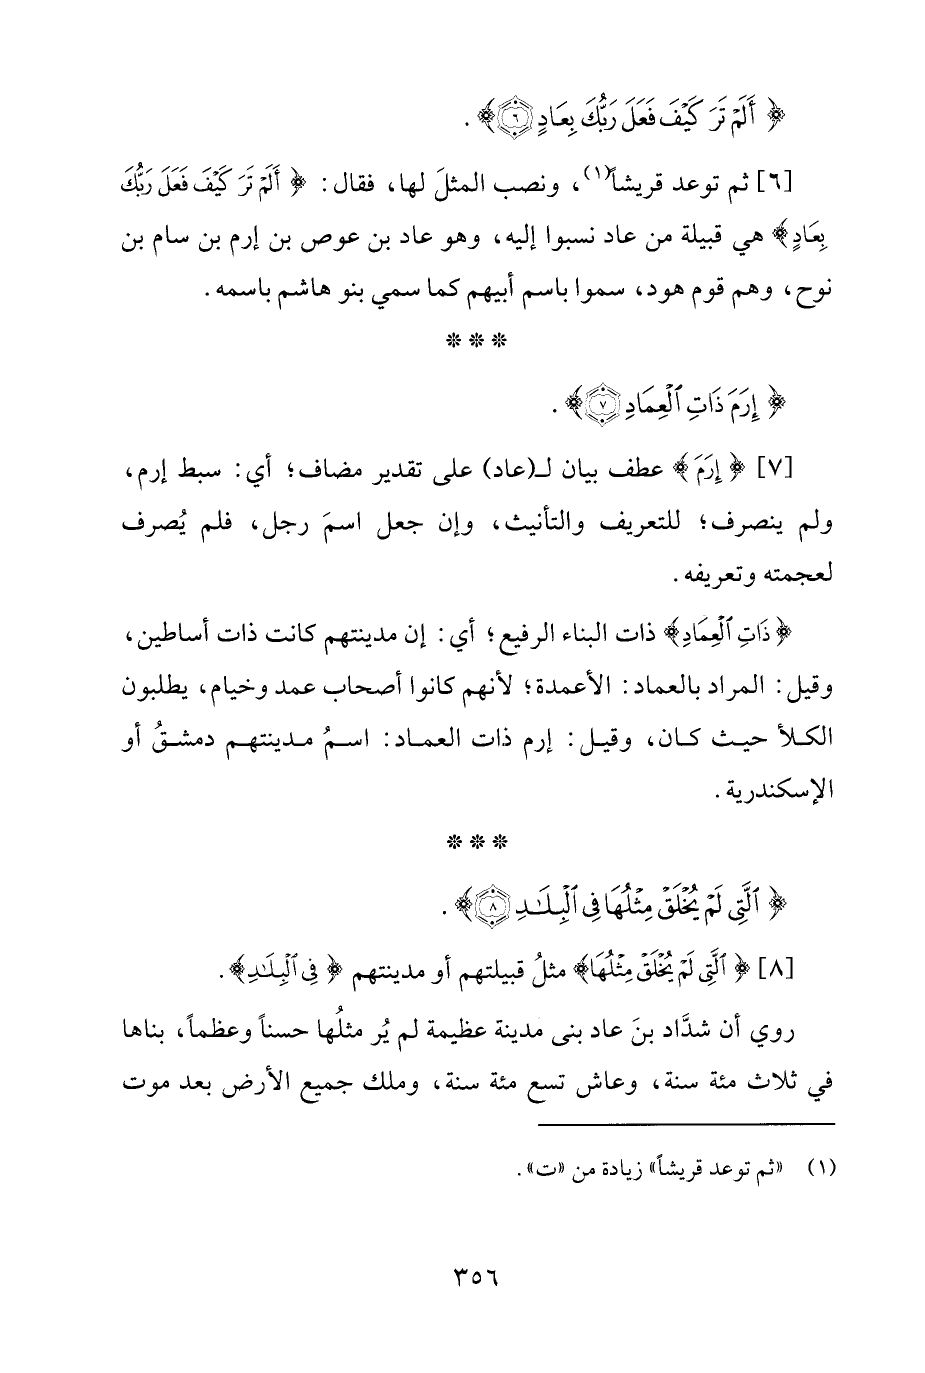 ﴿ أَلَمْ تَرَ كَيْفَ فَعَلَ رَبُّكَ بِعَادٍ ٦﴾ .
[٦] ثم توعد قريشاً(١)، ونصب المثلَ لها، فقال: ﴿ أَلَمْ تَرَ كَيْفَ فَعَلَ رَبُّكَ
بِعَادٍ﴾ هي قبيلة من عاد نسبوا إليه، وهو عاد بن عوص بن إرم بن سام بن
نوح، وهم قوم هود، سموا باسم أبيهم كما سمي بنو هاشم باسمه.
* * *
﴿ إِرَمَ ذَاتِ ٱلْعِمَادِ ٧﴾ .
[٧] ﴿ إِرَمَ ﴾ عطف بيان لـ(عاد) على تقدير مضاف؛ أي: سبط إرم،
ولم ينصرف؛ للتعريف والتأنيث، وإن جعل اسمَ رجل، فلم يُصرف
لعجمته وتعريفه.
﴿ ذَاتِ ٱلْعِمَادِ﴾ ذات البناء الرفيع؛ أي: إن مدينتهم كانت ذات أساطين،
وقيل: المراد بالعماد: الأعمدة؛ لأنهم كانوا أصحاب عمد وخيام، يطلبون
الكلأ حيث كان، وقيل: إرم ذات العماد: اسمُ مدينتهم دمشقُ أو
الإسكندرية.
* * *
﴿ ٱلَّتِى لَمْ يُخْلَقْ مِثْلُهَا فِى ٱلْبِلَـٰدِ ٨﴾ .
[٨] ﴿ ٱلَّتِى لَمْ يُخْلَقْ مِثْلُهَا﴾ مثلُ قبيلتهم أو مدينتهم ﴿ فِى ٱلْبِلَـٰدِ﴾ .
روي أن شدَّاد بنَ عاد بنى مدينة عظيمة لم يُر مثلُها حسناً وعظماً، بناها
في ثلاث مئة سنة، وعاش تسع مئة سنة، وملك جميع الأرض بعد موت
(١) «ثم توعد قريشاً» زيادة من «ت».
٣٥٦